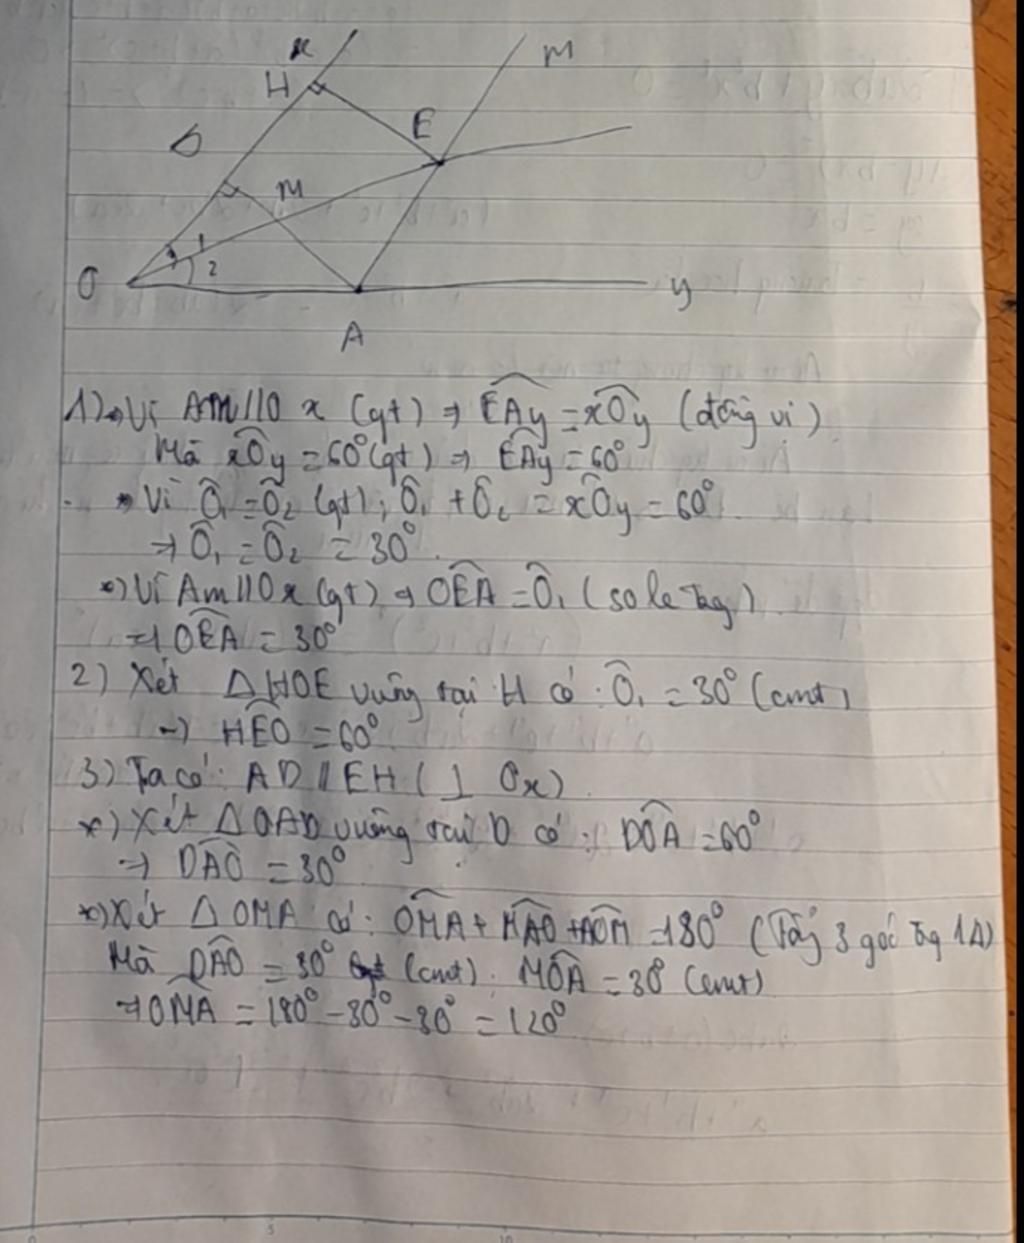 x
H
m
E
D
M
1
2
O
y
A
1) *) Vì Am // Ox (gt) ⇒ EAy = xOy (đồng vị)
Mà xOy = 60° (gt) ⇒ EAy = 60°
*) Vì Ô₁ = Ô₂ (gt); Ô₁ + Ô₂ = xOy = 60°
⇒ Ô₁ = Ô₂ = 30°
*) Vì Am // Ox (gt) ⇒ OEA = Ô₁ (so le tag)
⇒ OEA = 30°
2) Xét ΔHOE vuông tại H có: Ô₁ = 30° (cmt)
⇒ HEO = 60°
3) Ta có: AD // EH (⊥ Ox)
*) Xét ΔOAD vuông tại D có: DOA = 60°
⇒ DAO = 30°
*) Xét ΔOMA có: OMA + MAO + AOM = 180° (Tổng 3 góc tg 1Δ)
Mà DAO = 30° (cmt). MOA = 30° (cmt)
⇒ OMA = 180° - 30° - 30° = 120°